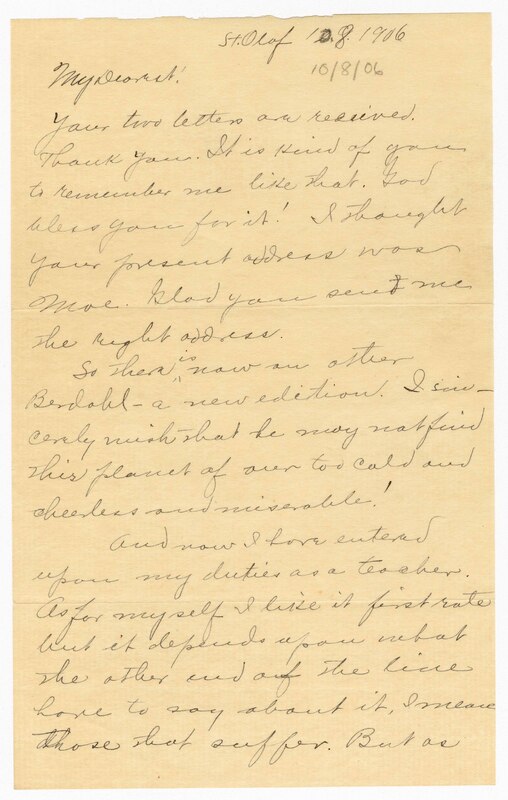 St. Olaf 10.8. 1906
10/8/06
My Dearest!
Your two letters are received.
Thank You. It is kind of you
to remember me like that. God
bless you for it! I thought
your present address was
Moe. Glad you send me
the right address.
So there is now an other
Berdahl - a new edition. I sin-
cerely wish that he may not find
this planet of our too cold and
cheerless and miserable!
And now I have entered
upon my duties as a teacher.
As for myself I like it first rate
but it depends upon what
the other end of the line
have to say about it, I mean
those that suffer. But as